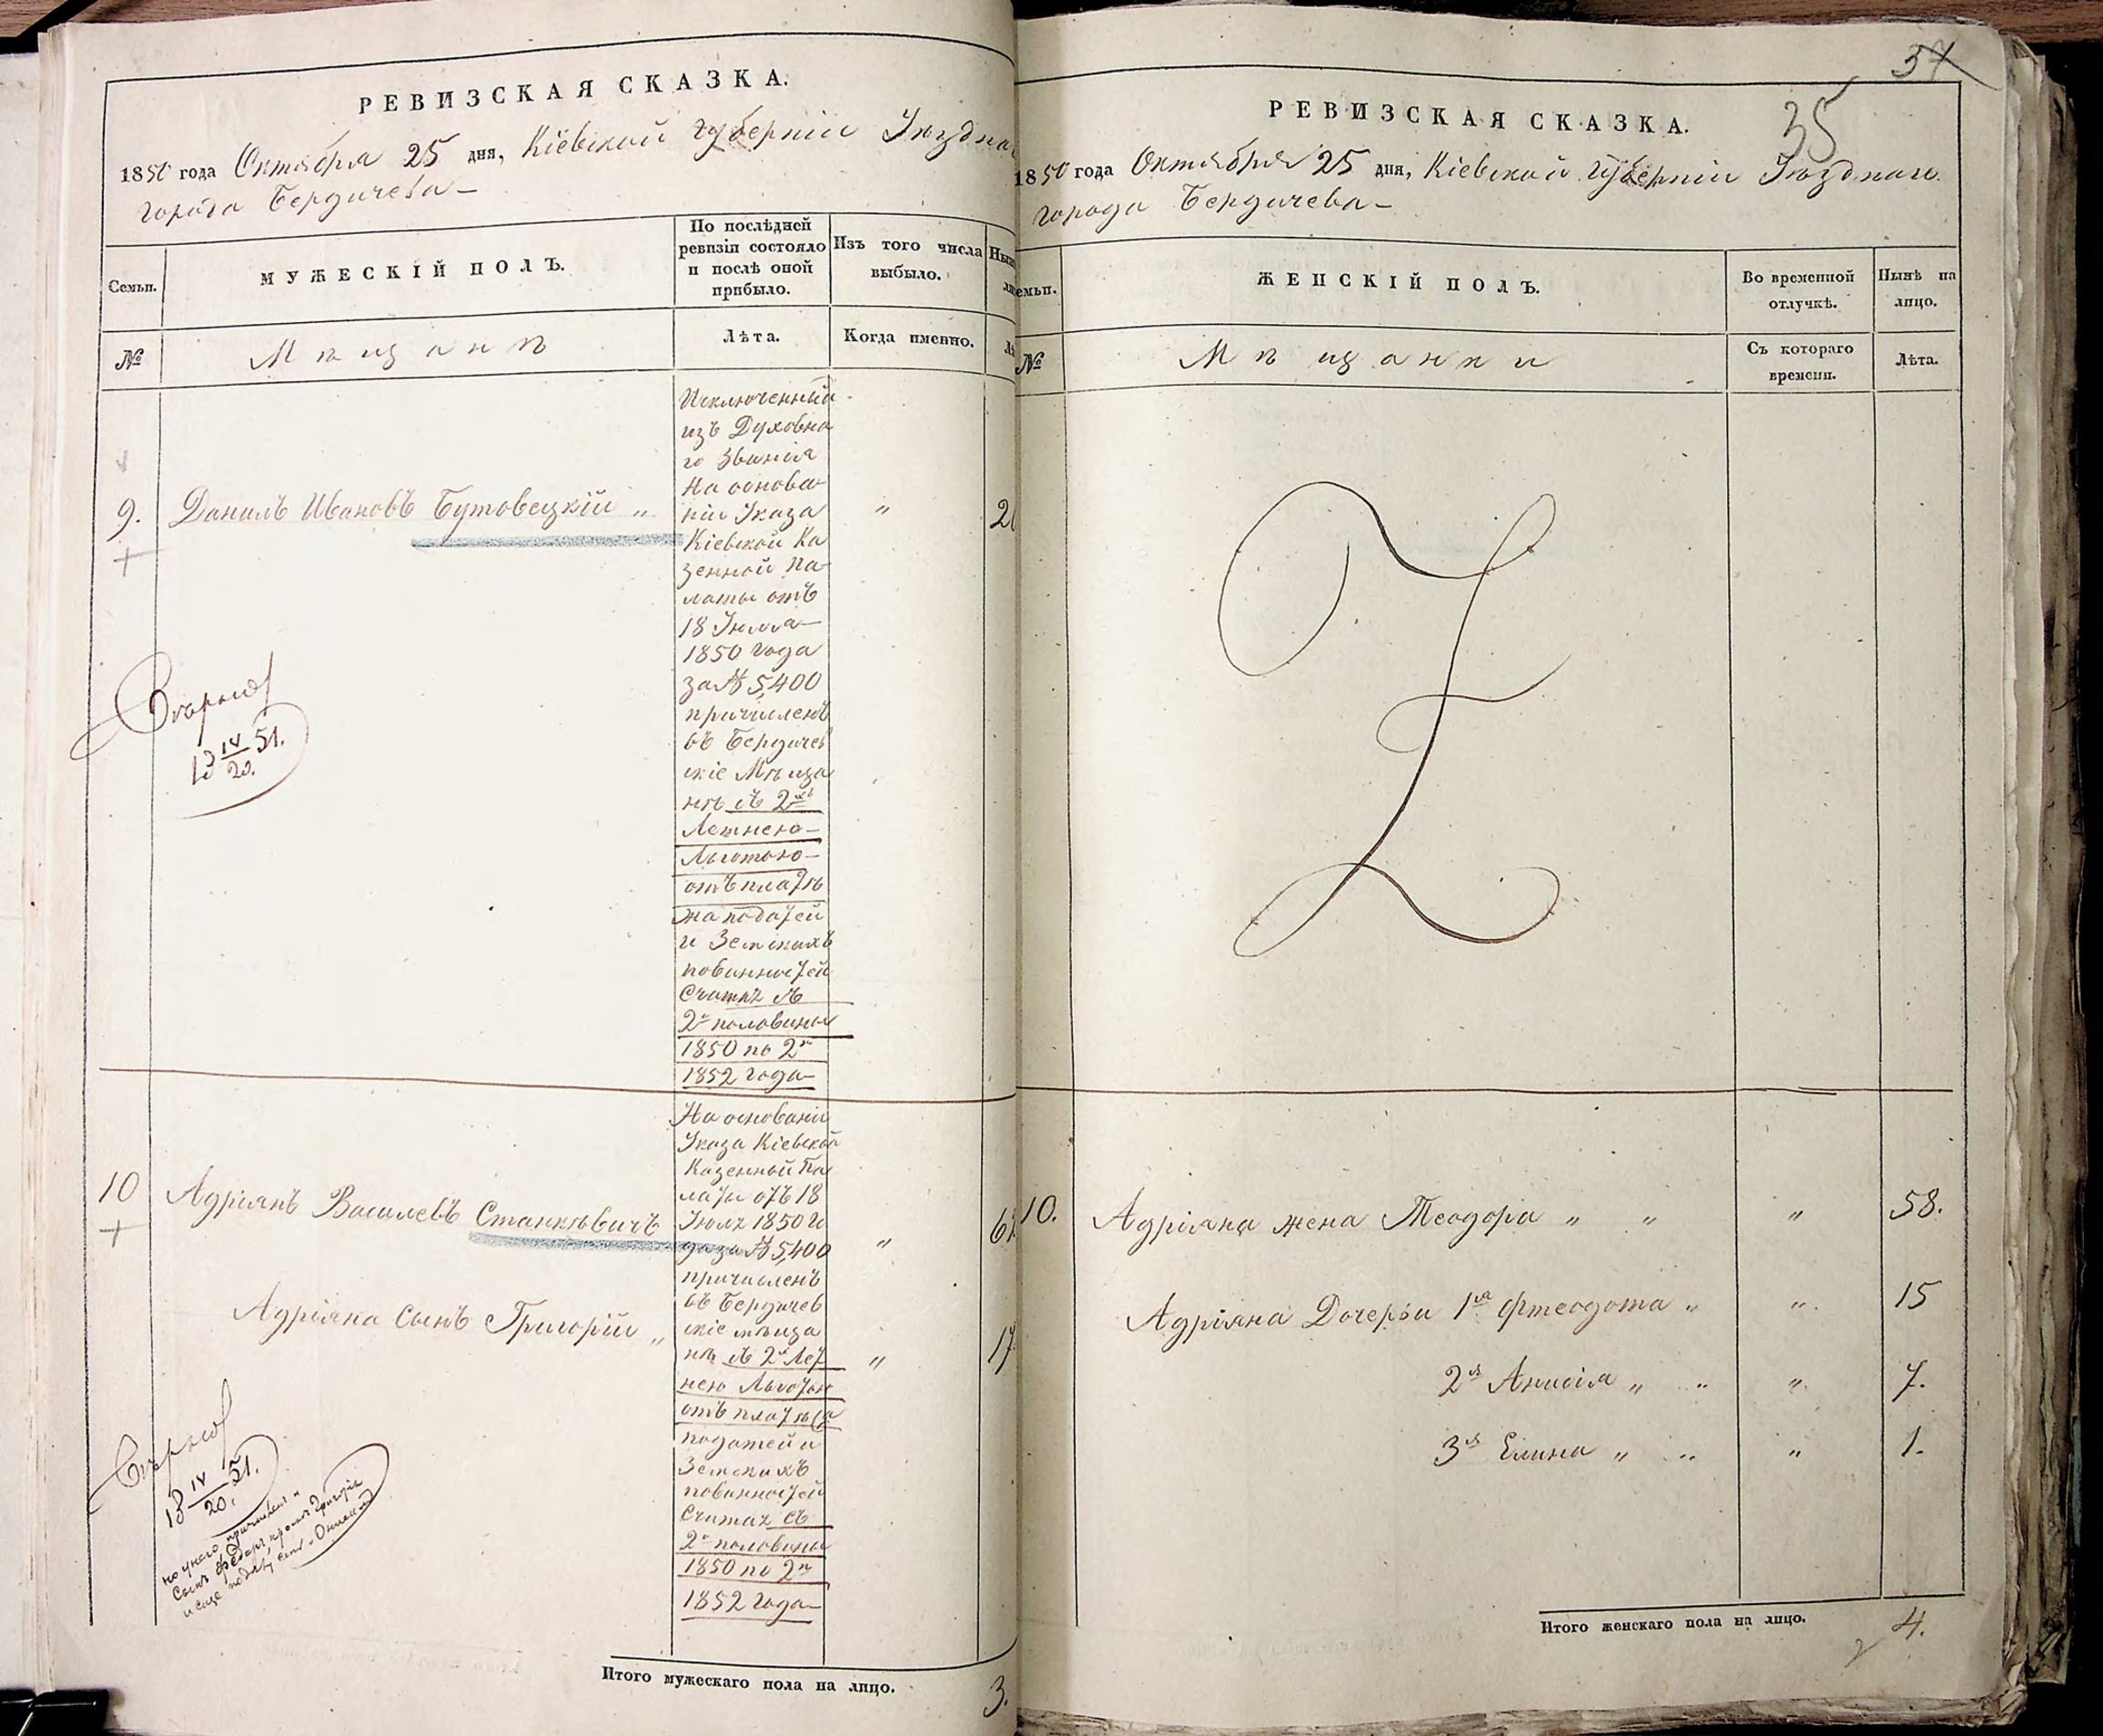 РЕВИЗСКАЯ СКАЗКА.
1850 года Октября 25 дня, Кіевской Губерніи Уѣзднаго
города Бердичева
Семьи.
МУЖЕСКІЙ ПОЛЪ.
По послѣдней
ревизіи состояло
и послѣ оной
прибыло.
Изъ того числа
выбыло.
№
Мѣщанъ
Лѣта.
Когда именно.
9. Данилъ Ивановъ Бутовецкій " "
Исключенный
изъ Духовна
го Званія
На основа
ніи Указа
Кіевской Ка
зенной Па
латы отъ
18 Іюля
1850 года
за № 5,400
причисленъ
въ Бердичев
скіе Мѣща
нѣ съ 2хъ
Летнею
Льготою
отъ плате
жа податей
и Земскихъ
повинностей
Считая съ
2й половины
1850 по 2ю
1852 года
13 IV/20. 51.
10 Адріянъ Василевъ Станкѣвичъ "
Адріяна Сынъ Григорій " " 17
На основаніи
Указа Кіевской
Казенной Па
латы отъ 18
Іюля 1850 го
да за № 5,400
причисленъ
въ Бердичев
скіе мѣща
нѣ съ 2х Лет
нею Льготою
отъ платежа
податей и
Земскихъ
повинностей
Считая съ
2й половины
1850 по 2ю
1852 года
13 IV/20. 51.
Итого мужескаго пола на лицо. 3.
34
35
РЕВИЗСКАЯ СКАЗКА.
1850 года Октября 25 дня, Кіевской Губерніи Уѣзднаго
города Бердичева
ЖЕНСКІЙ ПОЛЪ.
Во временной
отлучкѣ.
Нынѣ на
лицо.
№
Мѣщанки
Съ котораго
времени.
Лѣта.
10. Адріяна жена Теодора " " " 58.
Адріяна Дочерьи 1я Фтеодота " " 15
2я Анисія " " " 7.
3я Елина " " " 1.
Итого женскаго пола на лицо. 4.